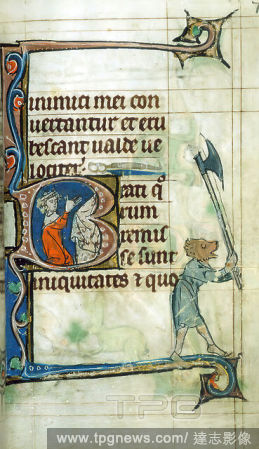 inimici mei con
uertantur et eru
bescant ualde ue
lociter.
Beati q
rum
remis
se sunt
iniquitates & quo
TPG
www.tpgnews.com/ 達志影像